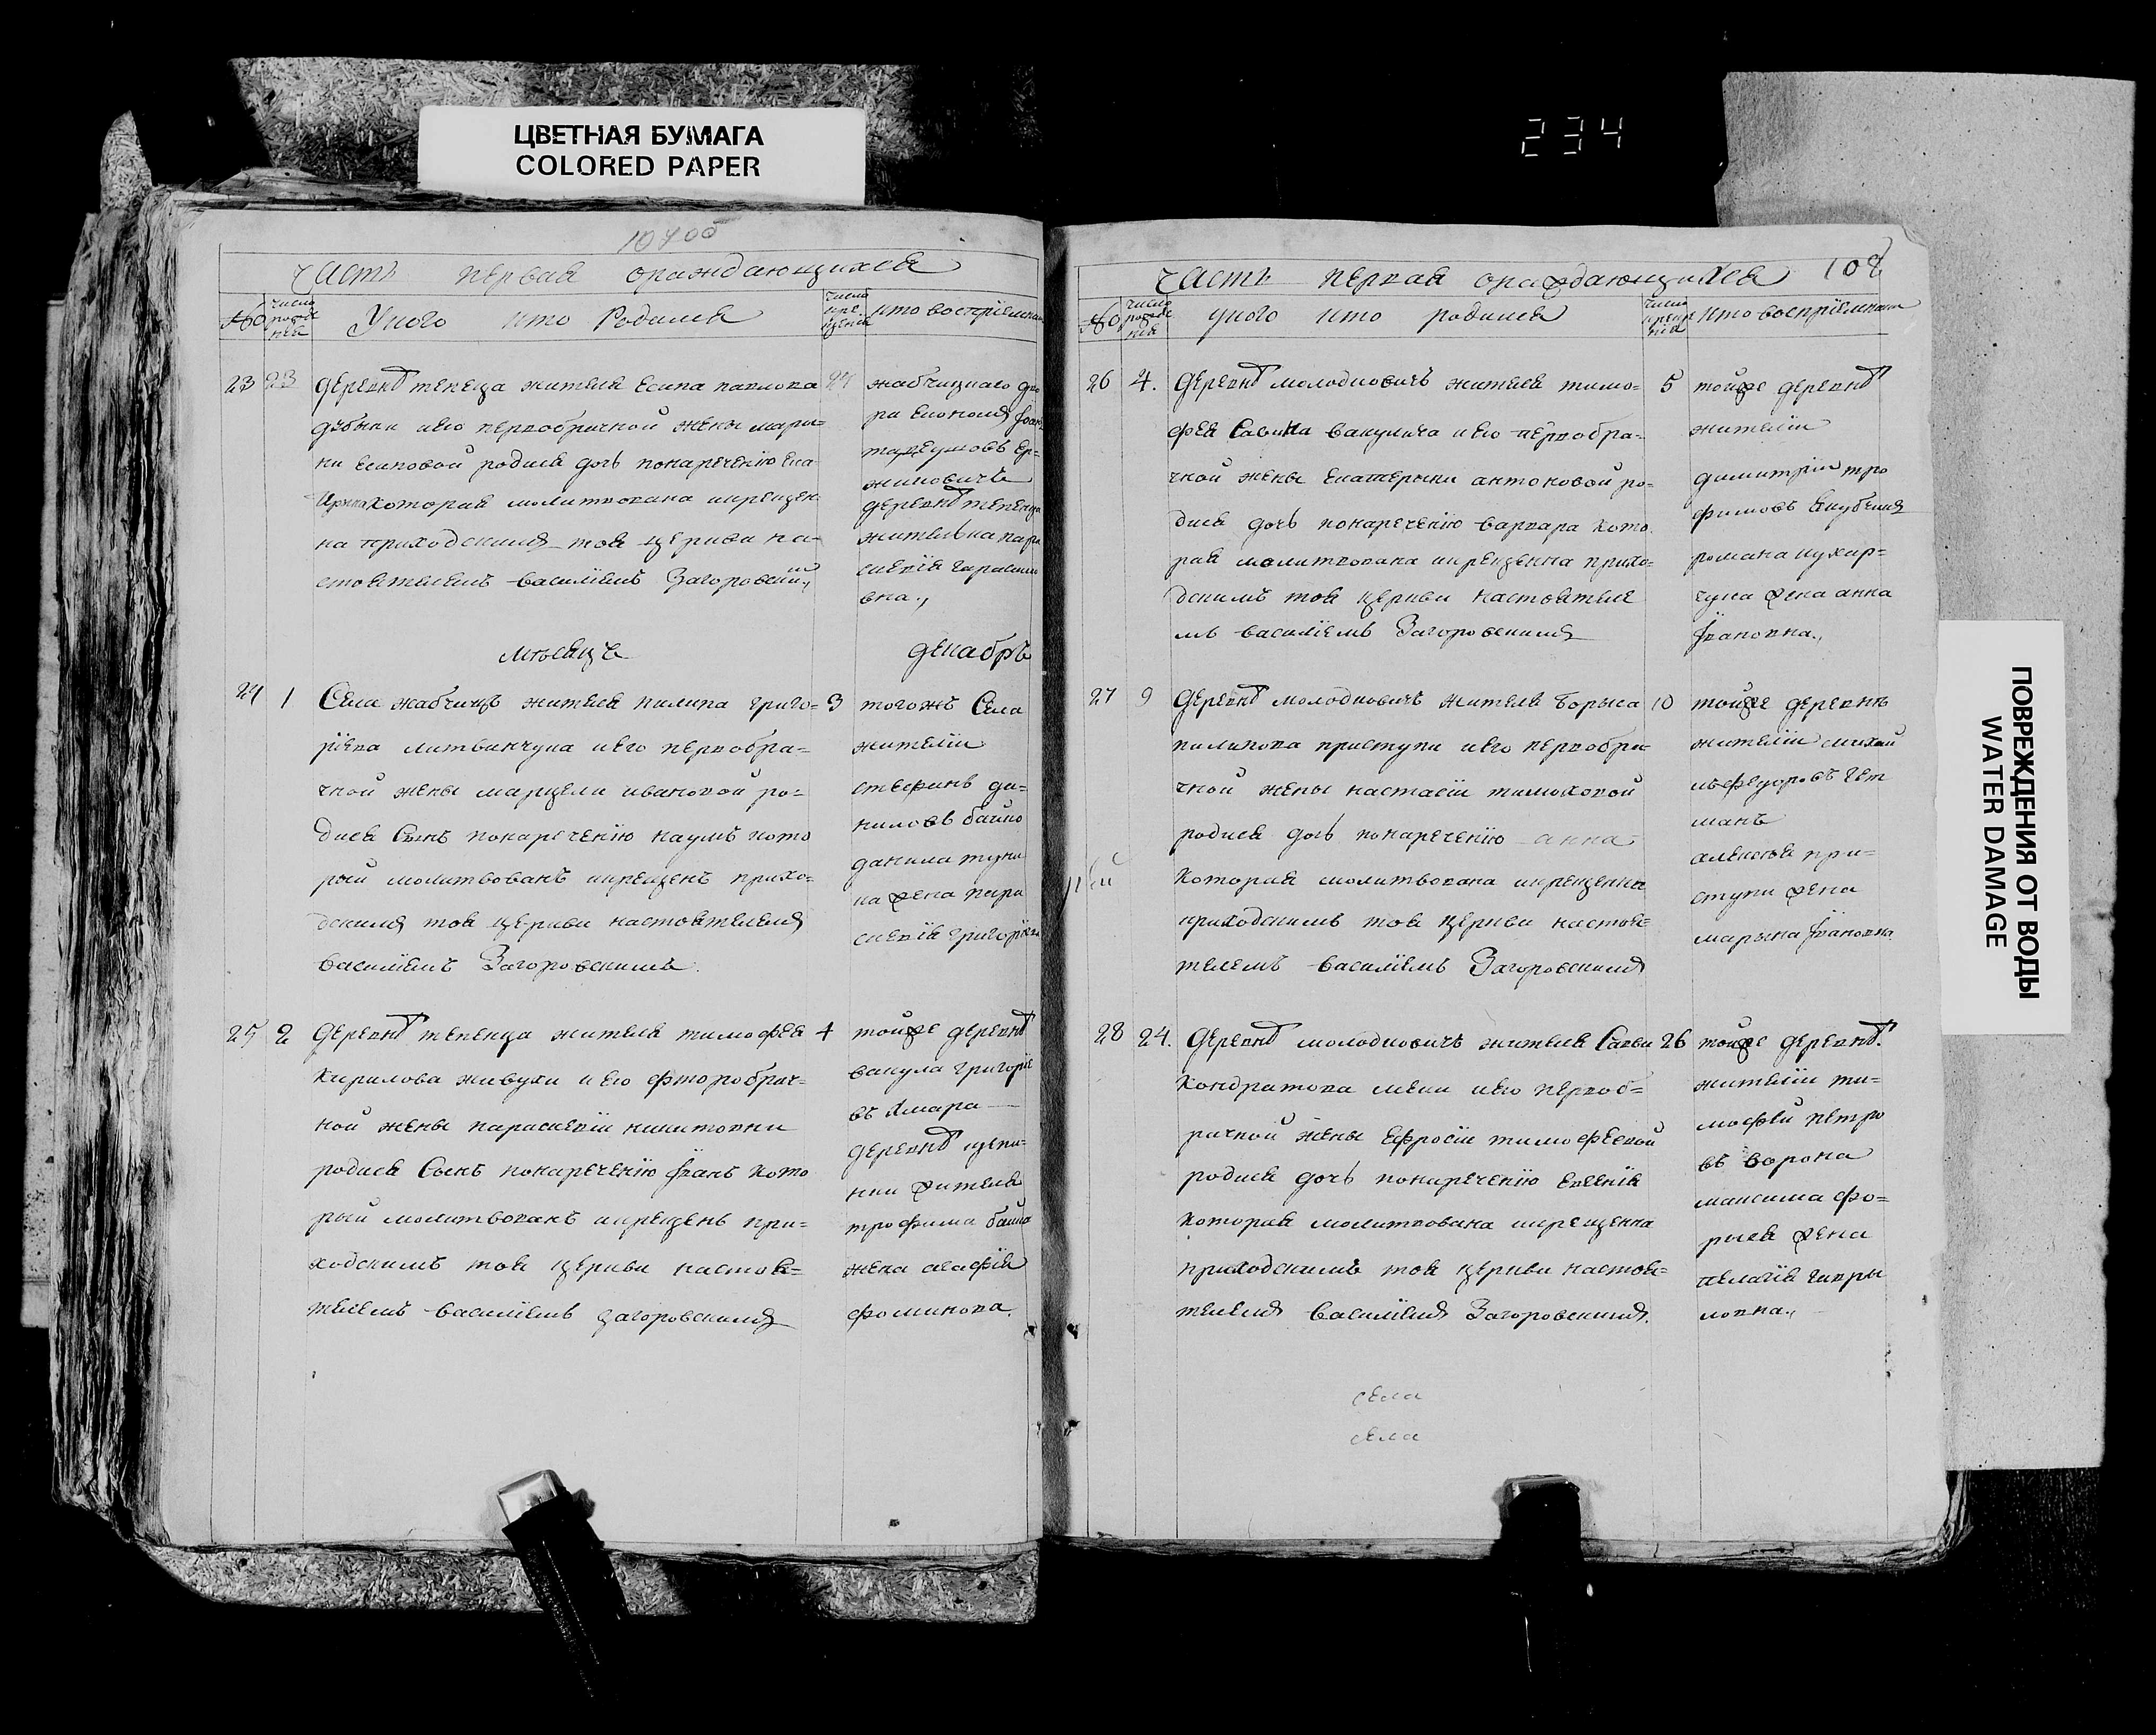 ЦВЕТНАЯ БУМАГА
COLORED PAPER
234
ПОВРЕЖДЕНИЯ ОТ ВОДЫ
WATER DAMAGE
107об
Часть первая ораждающихся
№ число рожде нія
Укого кто Родился
число кре щенія
кто воспріемники
23 23
деревнѣ тепенца жителя Есипа павлова
дзюбыка иего первобрачной жены мари
ни есиповой родися дочь понареченію Ека
которая молитвована икрещен
на приходскимъ тоя церкви на
стоятелемъ василіемъ Загоровским
27
жабчицкаго дво
ра економъ
жиновичъ
деревнѣ тепенца
жителька пара
скевія гарасимо
вна.,
мѣсяцъ декабрь
24 1
Села жабчицъ жителя пилипа григо=
ріева литвинчука иего первобра=
чной жены марцели ивановой ро=
дися Сынъ понареченію наумъ кото
рый молитвованъ икрещенъ прихо=
дскимъ тоя церкви настоятелемъ
василіемъ Загоровскимъ.
3
тогожъ Села
жителіи
стефанъ да=
ниловъ байко
данила туки
на жена пара
скевія григоріева
25 2
деревнѣ тепенца жителя тимофея
Кирилова живухи иего фторобрач=
ной жены параскевіи никитовны
родися Сынъ понареченію Іванъ кото
рый молитвованъ икрещенъ при=
ходскимъ тоя церкви настоя=
телемъ василіемъ загоровскимъ
4
тойже деревнѣ
вакула григоріе
въ хмара
деревнѣ
жителя
трофима байка
жена агафія
фоминова.
Часть первая ораждающихся 108
№ число рожде нія
укого кто родился
число креще нія
кто воспріемники
26 4.
деревнѣ молодковичъ жителя тимо=
фея Савина вакулича иего первобра=
чной жены Екатерыни антоновой ро=
дися дочь понареченію варвара кото
рая молитвована икрещенна прихо=
дскимъ тоя церкви настоятеле
мъ василіемъ Загоровскимъ
5
тойже деревнѣ
жителіи
димитрій тро
фимовъ
романа кухар=
чука жена анна
Івановна.,
27 9
деревнѣ молодковичъ жителя борыса
пилипова приступи иего первобра
чной жены настасіи тимоховой
родися дочь понареченію анна
Которая молитвована икрещенна
приходскимъ тоя церкви настоя=
телемъ василіемъ Загоровскимъ
10
тойже деревнѣ
жителіи михай
лъ федоровъ гет
манъ
алексѣя при=
ступи жена
марына Івановна
28 24.
деревнѣ молодковичъ жителя Савви
Кондратова меки иего первоб=
рачной жены Ефросіи тимофеевой
родися дочь понареченію Евгенія
Которая молитвована икрещенна
приходскимъ тоя церкви настоя=
телемъ василіемъ Загоровскимъ.
26
тойже деревнѣ.
жителіи ти=
мофѣй петро
въ ворона
максима фо=
рыся жена
пелагія гавры
ловна.,
села
села